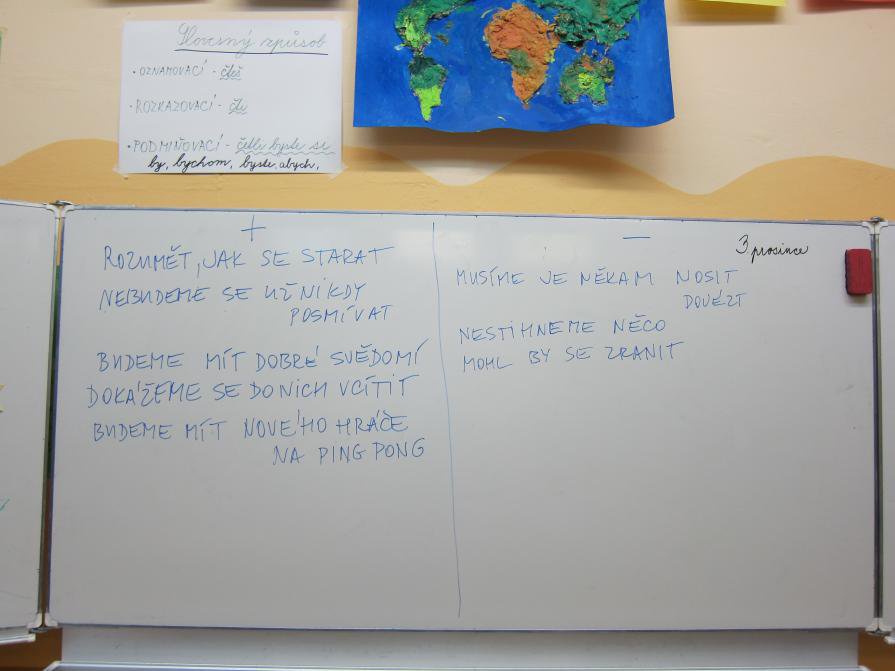 Slovesný způsob
• OZNAMOVACÍ - čteš
• ROZKAZOVACÍ - čti
• PODMIŇOVACÍ - četli byste se
by, bychom, byste, abych,
+
ROZUMĚT, JAK SE STARAT
NEBUDEME SE UŽ NIKDY
POSMÍVAT
BUDEME MÍT DOBRÉ SVĚDOMÍ
DOKÁŽEME SE DO NICH VCÍTIT
BUDEME MÍT NOVÉHO HRÁČE
NA PING PONG
—
3 prosince
MUSÍME JE NĚKAM NOSIT
DOVÉZT
NESTIHNEME NĚCO
MOHL BY SE ZRANIT